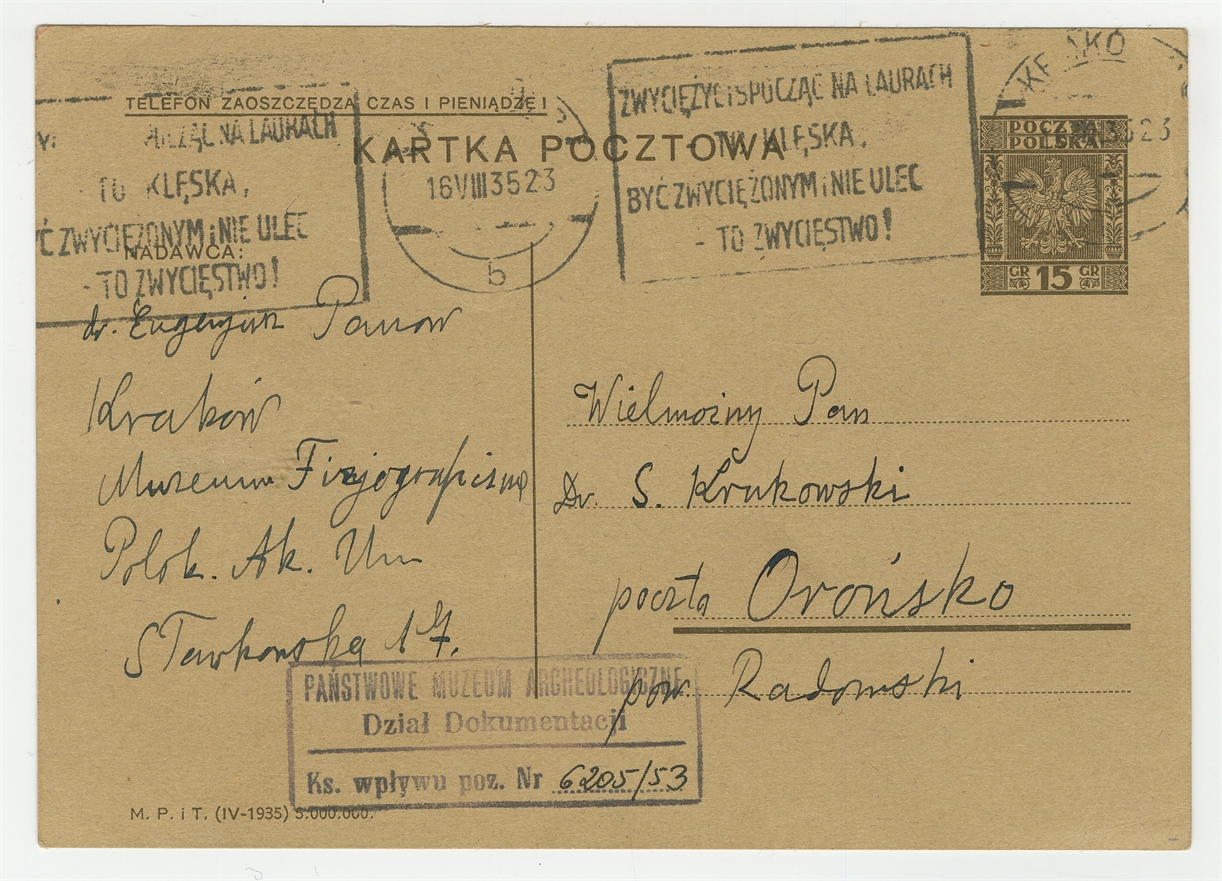 TELEFON ZAOSZCZĘDZA CZAS I PIENIĄDZE!
KARTKA POCZTOWA
NA LAURACH
TO KLĘSKA,
ZWYCIĘŻONYM i NIE ULEC
- TO ZWYCIĘSTWO!
16 VIII 35 23
b
ZWYCIĘŻYĆ i SPOCZĄĆ NA LAURACH
- TO KLĘSKA,
BYĆ ZWYCIĘŻONYM i NIE ULEC
- TO ZWYCIĘSTWO!
35 23
POCZTA
POLSKA
GR 15 GR
NADAWCA:
dr. Eugenjusz Panow
Kraków
Muzeum Fizjograficzne
Polsk. Ak. Um
Sławkowska 17.
Wielmożny Pan
Dr. S. Krukowski
poczta Orońsko
pow. Radomski
PAŃSTWOWE MUZEUM ARCHEOLOGICZNE
Dział Dokumentacji
Ks. wpływu poz. Nr 6205/53
M. P. i T. (IV-1935) 5.000.000.